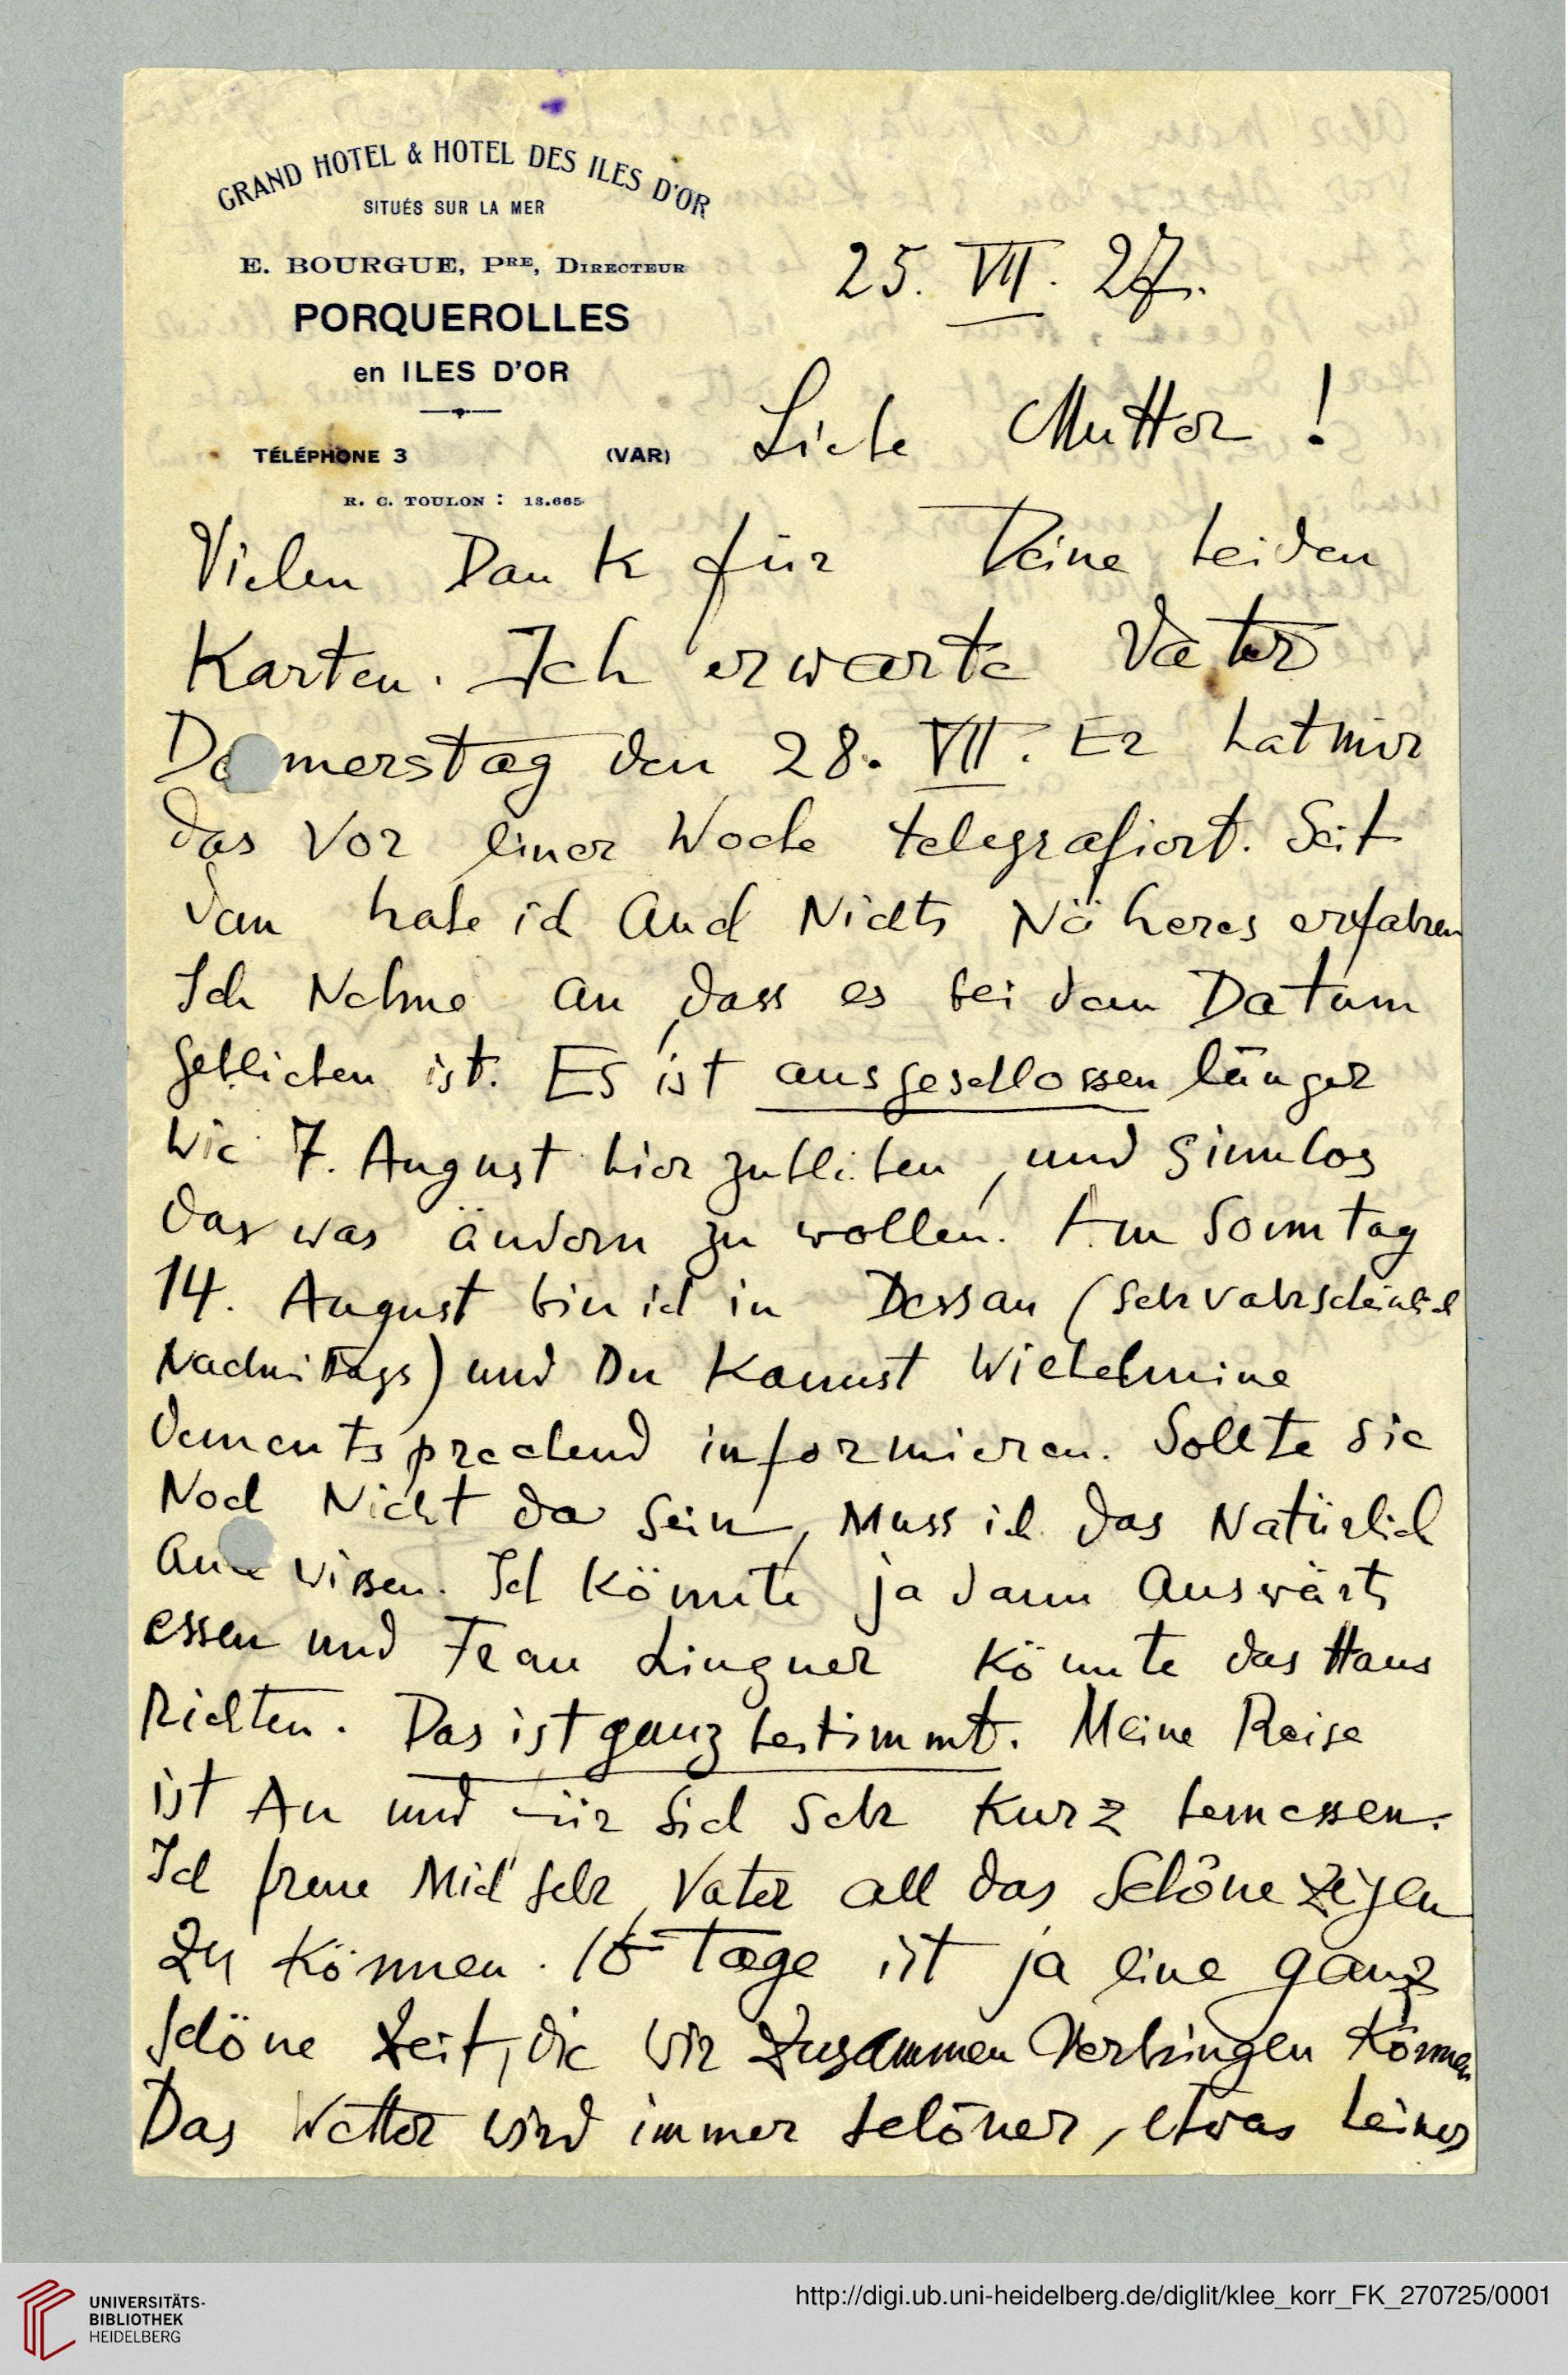 GRAND HOTEL & HOTEL DES ILES D'OR
SITUÉS SUR LA MER
E. BOURGUE, PRE, DIRECTEUR
PORQUEROLLES
en ILES D'OR
TÉLÉPHONE 3 (VAR)
R. C. TOULON : 13.665
25. VII. 27.
Liebe Mutter !
Vielen Dank für Deine beiden
Karten. Ich erwarte Vater
Donnerstag den 28. VII. Er hat mir
das vor einer Woche telegrafiert. Seit
dan habe ich auch Nichts Näheres erfahren
Ich Nehme an, dass es bei dem Datum
geblieben ist. Es ist ausgeschlossen länger
wie 7. August hier zubleiben, und sinnlos
das was ändern zu wollen. Am Sonntag
14. August bin ich in Dessau (sehr vahrscheinlich
Nachmittags) und Du Kannst Wiehelmine
dementsprechend informieren. Sollte sie
Noch Nicht da sein, Muss ich das Natürlich
auch wissen. Ich könnte ja dann Auswärts
essen und Frau Lingner könnte das Haus
Richten. Das ist ganz bestimmt. Meine Reise
ist An und für sich sehr kurz bemessen.
Ich freue Mich sehr, Vater all das Schöne zeigen
zu können. 16 Tage ist ja eine ganz
schöne Zeit, die wir zusammen verbringen können
Das Wetter wird immer schöner, etwas
UNIVERSITÄTS-
BIBLIOTHEK
HEIDELBERG
http://digi.ub.uni-heidelberg.de/diglit/klee_korr_FK_270725/0001